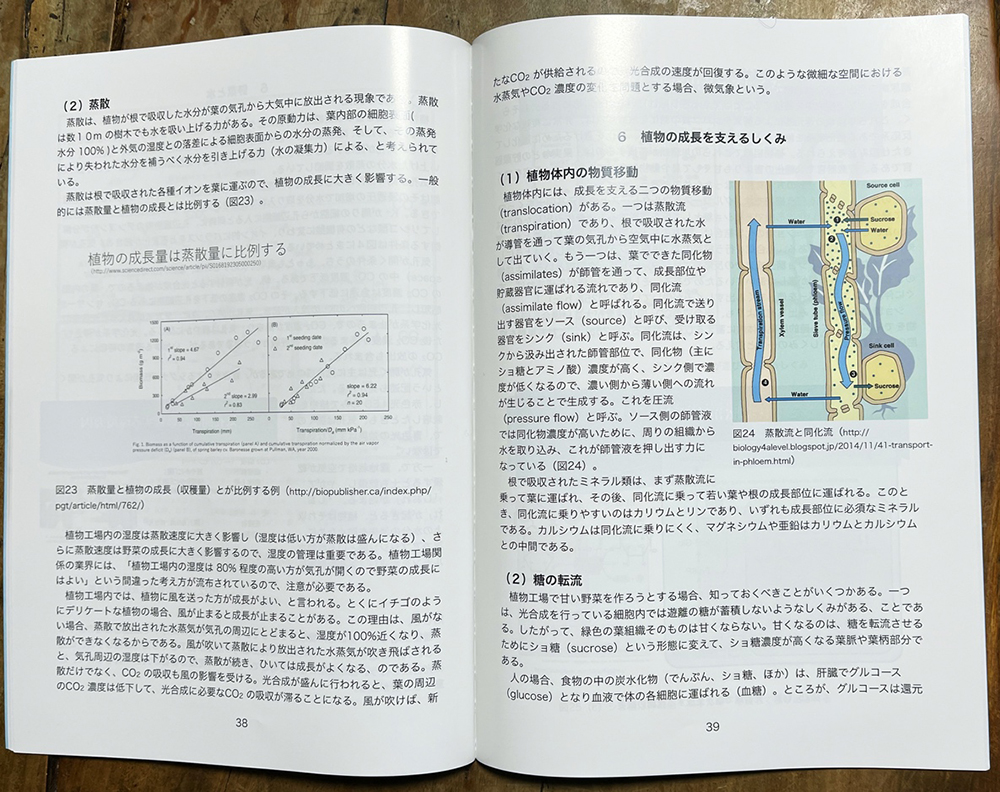 (2)蒸散
蒸散は、植物が根で吸収した水分が葉の気孔から大気中に放出される現象で 。蒸散
は数10mの樹木でも水を吸い上げる力がある。その原動力は、葉内部の細胞 (
水分 100% )と外気の湿度との落差による細胞表面からの水分の蒸発、そして、 の蒸発
により失われた水分を補うべく水分を引き上げる力(水の凝集力)による、と考えられて
いる。
蒸散は根で吸収された各種イオンを葉に運ぶので、植物の成長に大きく影響する。一般
的には蒸散量と植物の成長とは比例する(図23)。
植物の成長量は蒸散量に比例する
(http://www.sciencedirect.com/science/article/pii/S0168192305000250)
(A)
1st slope = 4.67
r² = 0.94
2nd slope = 2.99
r² = 0.83
(B)
1st seeding date
2nd seeding date
slope = 6.22
r² = 0.94
n = 20
Biomass (g m-2)
1500
1200
900
600
300
0
0 50 100 150 200 250
0 50 100 150 200 250
Transpiration (mm)
Transpiration/Da (mm kPa-1)
Fig. 1. Biomass as a function of cumulative transpiration (panel A) and cumulative transpiration normalized by the air vapor
pressure deficit (Da) (panel B), of spring barley cv. Baronesse grown at Pullman, WA, year 2000
図23 蒸散量と植物の成長(収穫量)とが比例する例(http://biopublisher.ca/index.php/
pgt/article/html/762/)
植物工場内の湿度は蒸散速度に大きく影響し(湿度は低い方が蒸散は盛んになる)、さ
らに蒸散速度は野菜の成長に大きく影響するので、湿度の管理は重要である。植物工場関
係の業界には、「植物工場内の湿度は 80% 程度の高い方が気孔が開くので野菜の成長に
はよい」という間違った考え方が流布されているので、注意が必要である。
植物工場内では、植物に風を送った方が成長がよい、と言われる。とくにイチゴのよう
にデリケートな植物の場合、風が止まると成長が止まることがある。この理由は、風がな
い場合、蒸散で放出された水蒸気が気孔の周辺にとどまると、湿度が100%近くなり、蒸
散ができなくなるからである。風が吹いて蒸散により放出された水蒸気が吹き飛ばされる
と、気孔周辺の湿度は下がるので、蒸散が続き、ひいては成長がよくなる、のである。蒸
散だけでなく、CO2 の吸収も風の影響を受ける。光合成が盛んに行われると、葉の周辺
のCO2 濃度は低下して、光合成に必要なCO2 の吸収が滞ることになる。風が吹けば、新
38
たなCO2 が供給される 光合成の速度が回復する。このような微細な空間における
水蒸気やCO2 濃度の変化 問題とする場合、微気象という。
6 植物の成長を支えるしくみ
(1)植物体内の物質移動
植物体内には、成長を支える二つの物質移動
(translocation)がある。一つは蒸散流
(transpiration)であり、根で吸収された水
が導管を通って葉の気孔から空気中に水蒸気と
して出ていく。もう一つは、葉でできた同化物
(assimilates)が師管を通って、成長部位や
貯蔵器官に運ばれる流れであり、同化流
(assimilate flow)と呼ばれる。同化流で送り
出す器官をソース(source)と呼び、受け取る
器官をシンク(sink)と呼ぶ。同化流は、シン
クから汲み出された師管部位で、同化物(主に
ショ糖とアミノ酸)濃度が高く、シンク側で濃
度が低くなるので、濃い側から薄い側への流れ
が生じることで生成する。これを圧流
(pressure flow)と呼ぶ。ソース側の師管液
では同化物濃度が高いために、周りの組織から
水を取り込み、これが師管液を押し出す力に
なっている(図24)。
Source cell
Water
1
Sucrose
Water
2
Transpiration stream
Xylem vessel
Sieve tube (phloem)
Pressure flow
Sink cell
3
Sucrose
4
Water
図24 蒸散流と同化流(http://
biology4alevel.blogspot.jp/2014/11/41-transport-
in-phloem.html)
根で吸収されたミネラル類は、まず蒸散流に
乗って葉に運ばれ、その後、同化流に乗って若い葉や根の成長部位に運ばれる。このと
き、同化流に乗りやすいのはカリウムとリンであり、いずれも成長部位に必須なミネラル
である。カルシウムは同化流に乗りにくく、マグネシウムや亜鉛はカリウムとカルシウム
との中間である。
(2)糖の転流
植物工場で甘い野菜を作ろうとする場合、知っておくべきことがいくつかある。一つ
は、光合成を行っている細胞内では遊離の糖が蓄積しないようなしくみがある、ことであ
る。したがって、緑色の葉組織そのものは甘くならない。甘くなるのは、糖を転流させる
ためにショ糖(sucrose)という形態に変えて、ショ糖濃度が高くなる葉脈や葉柄部分で
ある。
人の場合、食物の中の炭水化物(でんぷん、ショ糖、ほか)は、肝臓でグルコース
(glucose)となり血液で体の各細胞に運ばれる(血糖)。ところが、グルコースは還元
39